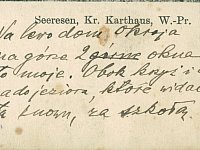 Seeresen, Kr. Karthaus, W.-Pr.
Na lewo dom Okroja
na górze 2 górne okna
to moje. Obok krzyż i
nad jeziora, które widać
znowu, za szkołą